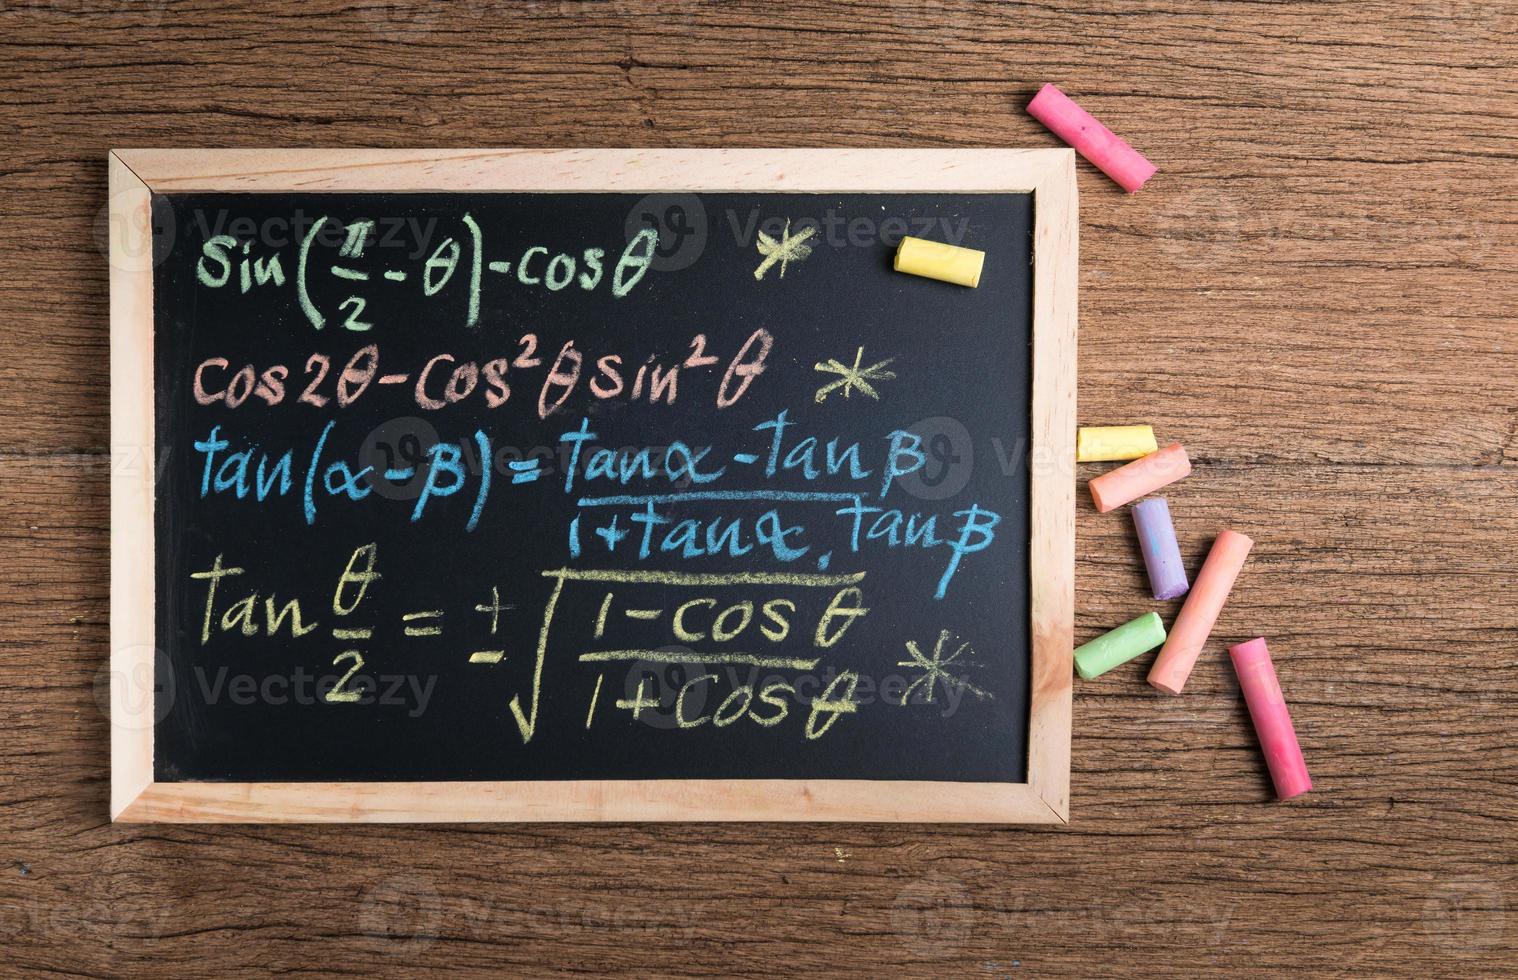 sin(π/2 - θ) - cosθ *
cos2θ - cos²θ sin²θ *
tan(α - β) = tanα - tanβ
1 + tanα . tanβ
tan θ/2 = ± √ 1 - cosθ
1 + cosθ *
Vecteezy